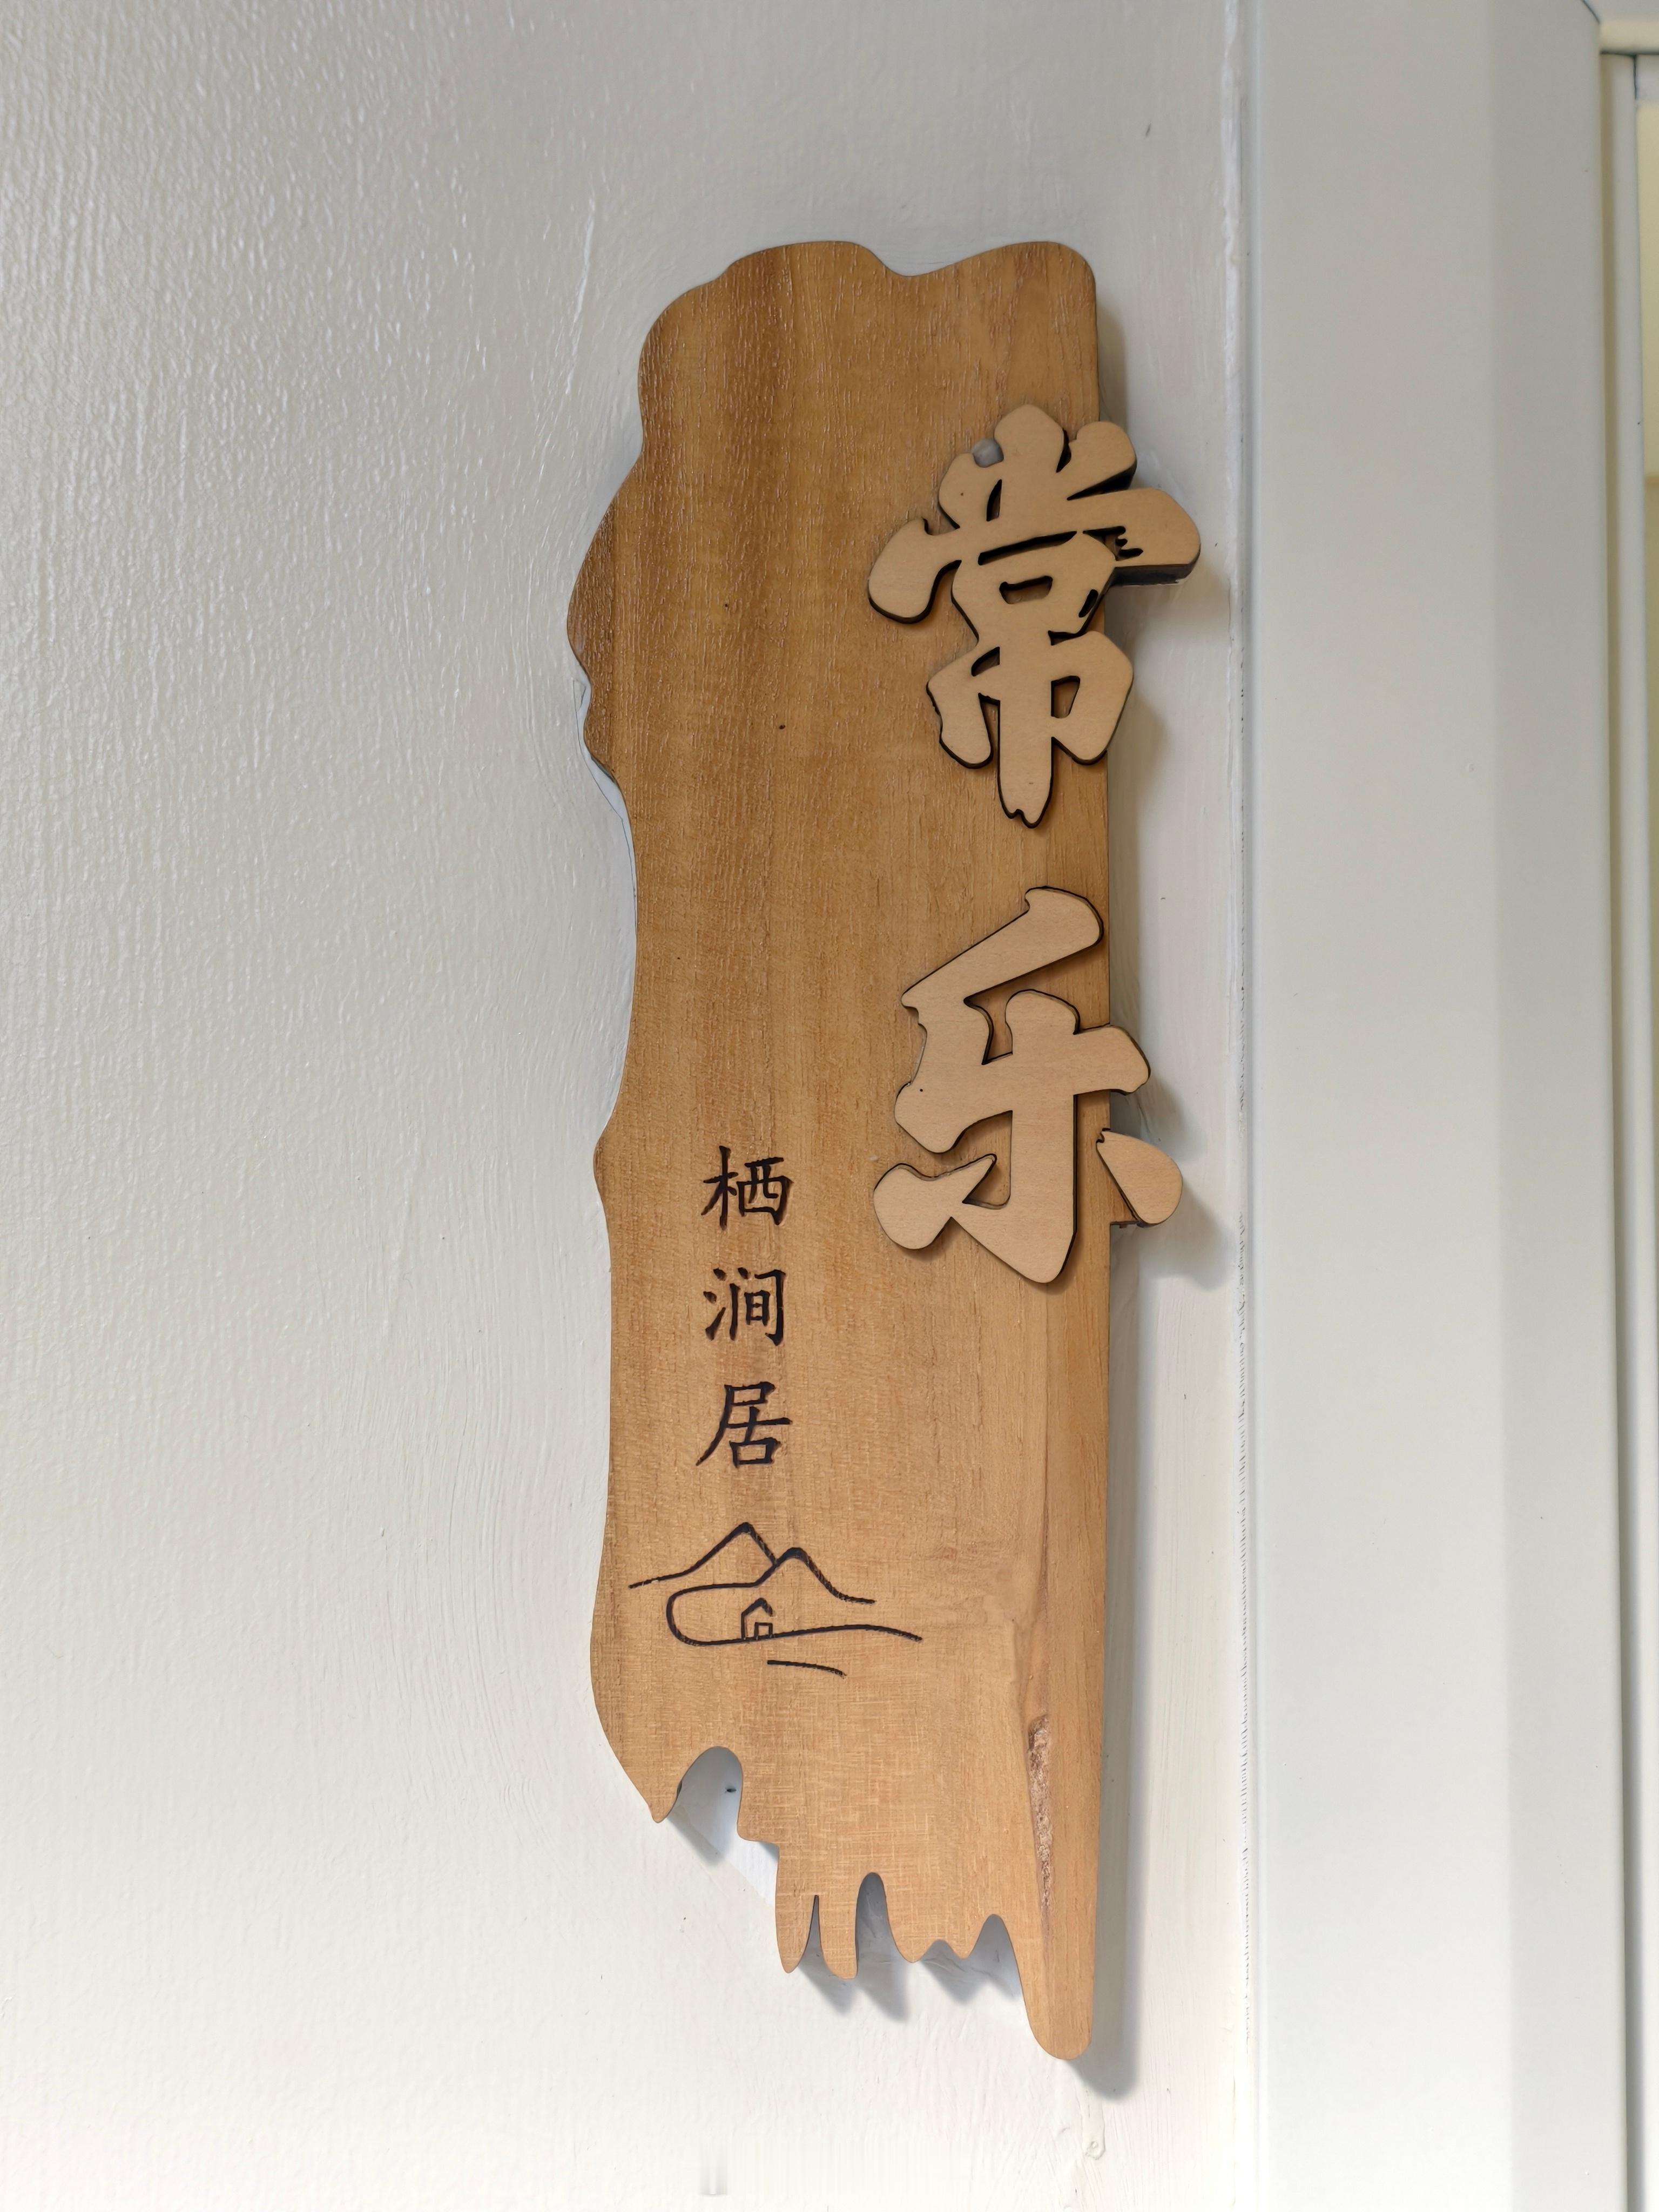 常乐
栖涧居